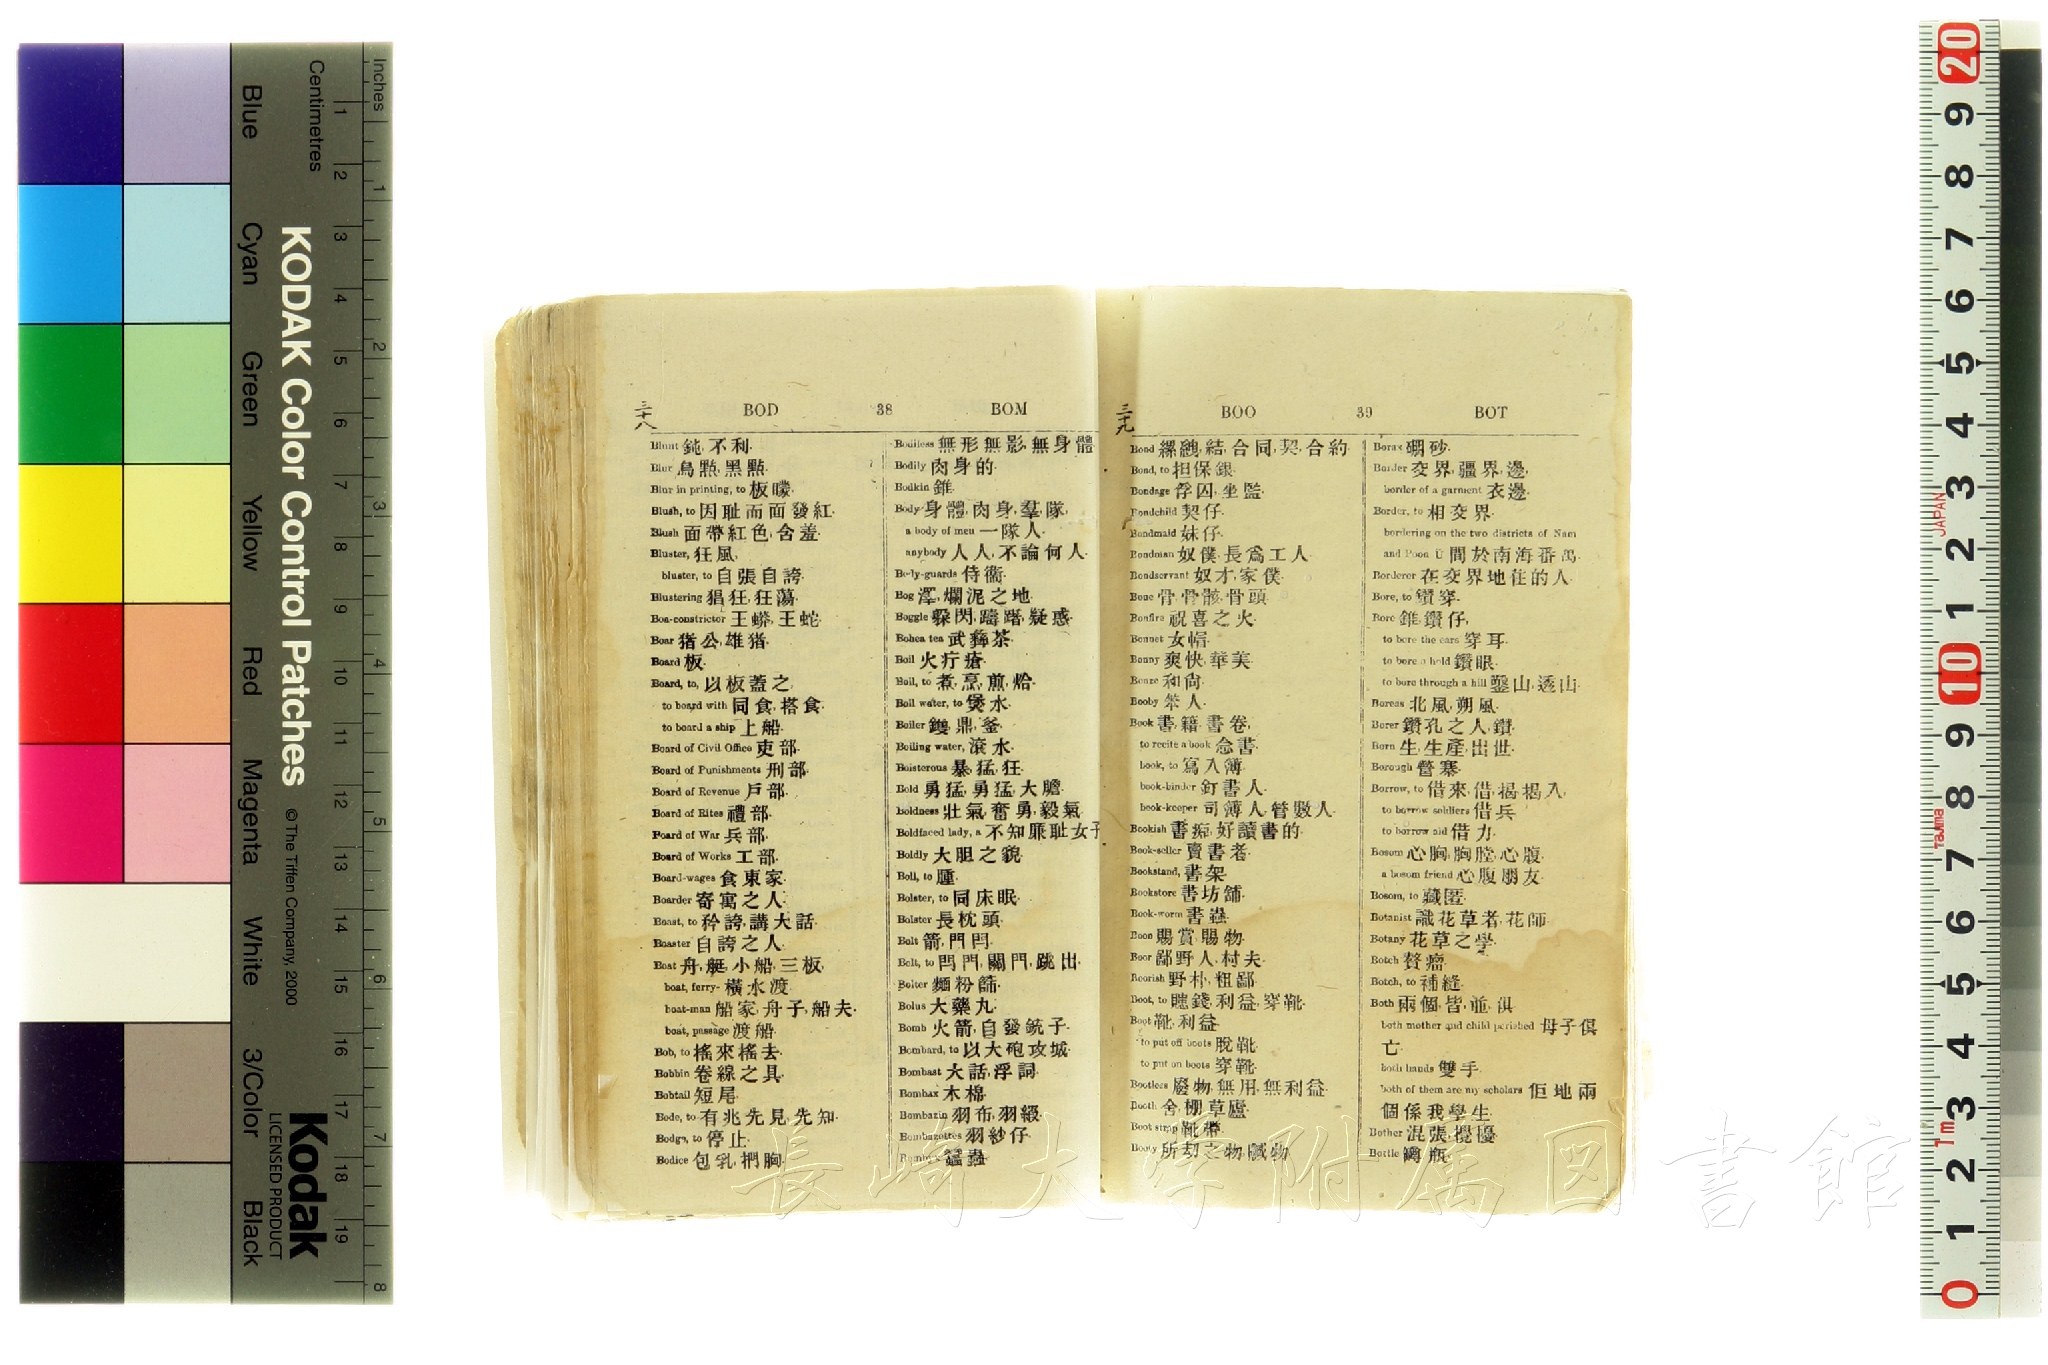 Inches
Centimetres
KODAK Color Control Patches
© The Tiffen Company, 2000
Kodak
LICENSED PRODUCT
Blue
Cyan
Green
Yellow
Red
Magenta
White
3/Color
Black
三十八
BOD 38 BOM
Blunt 鈍,不利.
Blur 烏㸃,黑㸃.
Blur in printing, to 板曚.
Blush, to 因耻而面發紅.
Blush 面帶紅色,含羞.
Bluster, 狂風,
bluster, to 自張自誇.
Blustering 猖狂,狂蕩.
Boa-constrictor 王蟒,王蛇.
Boar 猪公,雄猪.
Board 板.
Board, to, 以板蓋之,
to board with 同食,搭食.
to board a ship 上船.
Board of Civil Office 吏部.
Board of Punishments 刑部.
Board of Revenue 戶部.
Board of Rites 禮部.
Board of War 兵部.
Board of Works 工部.
Board-wages 食東家.
Boarder 寄寓之人.
Boast, to 矜誇,講大話.
Boaster 自誇之人.
Boat 舟,艇,小船,三板,
boat, ferry- 橫水渡.
boat-man 船家,舟子,船夫.
boat, passage 渡船.
Bob, to 搖來搖去.
Bobbin 卷線之具.
Bobtail 短尾.
Bode, to 有兆先見,先知.
Bodge, to 停止.
Bodice 包乳,捫胸.
Bodiless 無形無影,無身體
Bodily 肉身的.
Bodkin 錐.
Body 身體,肉身,羣,隊,
a body of men 一隊人.
anybody 人人,不論何人.
Body-guards 侍衞.
Bog 澤,爛泥之地.
Boggle 躱閃,躊躇,疑惑.
Bohea tea 武彝茶.
Boil 火疔瘡.
Boil, to 煮,烹,煎,烚.
Boil water, to 煲水.
Boiler 鑊,鼎,釜.
Boiling water, 滾水.
Boisterous 暴,猛,狂.
Bold 勇猛,勇猛,大膽.
boldness 壯氣,奮勇,毅氣.
Boldfaced lady, a 不知廉耻女子
Boldly 大胆之貌.
Boll, to 腫.
Bolster, to 同床眠.
Bolster 長枕頭.
Bolt 箭,門閂.
Bolt, to 閂門,關門,跳出.
Bolter 麵粉篩.
Bolus 大藥丸.
Bomb 火箭,自發銃子.
Bombard, to 以大砲攻城.
Bombast 大話,浮詞.
Bombax 木棉.
Bombazin 羽布,羽緞.
Bombazettes 羽紗仔.
三十九
BOO 39 BOT
Bond 縲絏,結,合同,契,合約.
Bond, to 担保銀.
Bondage 俘囚,坐監.
Bondchild 契仔.
Bondmaid 妹仔.
Bondman 奴僕,長爲工人.
Bondservant 奴才,家僕.
Bone 骨,骨骸,骨頭.
Bonfire 祝喜之火.
Bonnet 女帽.
Bonny 爽快,華美.
Bonze 和尙.
Booby 笨人.
Book 書,籍,書卷,
to recite a book 念書.
book, to 寫入簿.
book-binder 釘書人.
book-keeper 司簿人,管數人.
Bookish 書痴,好讀書的.
Book-seller 賣書者.
Bookstand, 書架.
Bookstore 書坊舖.
Book-worm 書蟲.
Boon 賜,賞,賜物.
Boor 鄙野人,村夫.
Boorish 野朴,粗鄙.
Boot, to 賺錢,利益,穿靴.
Boot 靴,利益.
to put off boots 脫靴.
to put on boots 穿靴.
Bootless 廢物,無用,無利益.
Booth 舍,棚,草廬.
Boot strap 靴帶.
Booty 所刧之物,贓物.
Borax 硼砂.
Border 交界,疆界,邊,
border of a garment 衣邊.
Border, to 相交界.
bordering on the two districts of Nam
and Poon U 間於南海番禺.
Borderer 在交界地住的人.
Bore, to 鑽穿.
Bore 錐,鑽仔,
to bore the ears 穿耳.
to bore a hold 鑽眼.
to bore through a hill 鑿山,透山.
Boreas 北風,朔風.
Borer 鑽孔之人,鑽.
Born 生,生產,出世.
Borough 營寨.
Borrow, to 借來,借,揭,揭入,
to borrow soldiers 借兵.
to borrow aid 借力.
Bosom 心胸,胸膛,心腹.
a bosom friend 心腹朋友.
Bosom, to 藏匿.
Botanist 識花草者,花師.
Botany 花草之學.
Botch 贅瘤.
Botch, to 補縫.
Both 兩個,皆,並,俱.
both mother and child perished 母子俱
亡.
both hands 雙手.
both of them are my scholars 佢地兩
個係我學生.
Bother 混張,攪擾.
Bottle 罇,瓶.
長崎大学附属図書館
JAPAN
Tajima
1m